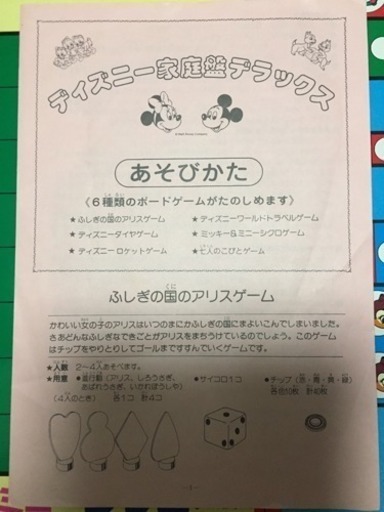 ディズニー家庭盤デラックス
© Walt Disney Company
あそびかた
《6種類のボードゲームがたのしめます》
★ふしぎの国のアリスゲーム ★ディズニーワールドトラベルゲーム
★ディズニータイヤゲーム ★ミッキー&ミニーシクロゲーム
★ディズニーロケットゲーム ★七人のこびとゲーム
ふしぎの国のアリスゲーム
かわいい女の子のアリスはいつのまにかふしぎの国にまよいこんでしまいました。
さあどんなふしぎなできごとがアリスをまちうけているのでしょう。このゲー
ムはチップをやりとりしてゴールまですすんでいくゲームです。
★人数 2〜4人あそべます。
★用意 ●並行駒(アリス、しろうさぎ、 ●サイコロ1コ ●チップ(赤・青・黄・緑)
あばれうさぎ、いかれぼうしや) 各色10枚 計40枚
(4人のとき) 各1コ 計4コ
—1—